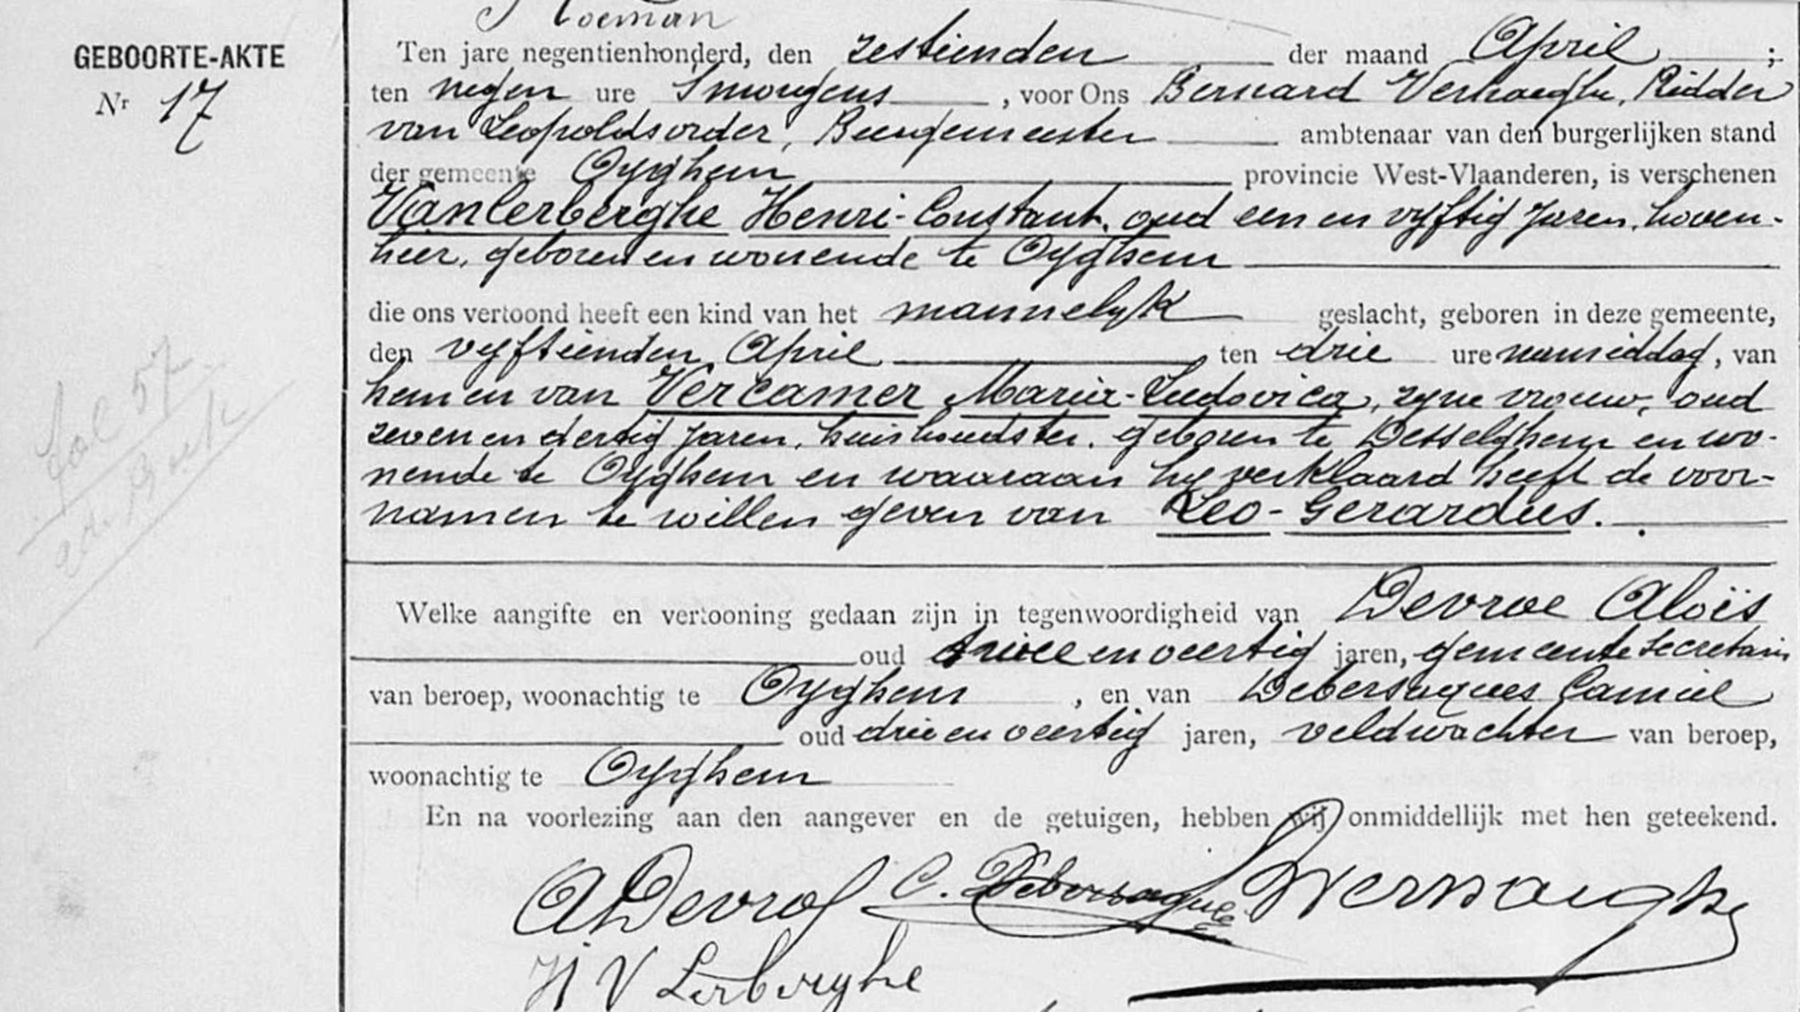 Roeman
GEBOORTE-AKTE
Nr 17
Ten jare negentienhonderd, den zestienden der maand April ;
ten negen ure Smorgens , voor Ons Bernard Verhaeghe, Ridder
van Leopoldsorder, Burgemeester ambtenaar van den burgerlijken stand
der gemeente Oyghem provincie West-Vlaanderen, is verschenen
Vanlerberghe Henri-Constant, oud een en vyftig jaren, hoven-
heer, geboren en wonende te Oyghem
die ons vertoond heeft een kind van het mannelyk geslacht, geboren in deze gemeente,
den vyftienden April ten drie ure namiddag, van
hem en van Vercamer Maria-Ludovica, zyne vrouw, oud
zeven en dertig jaren, huishoudster, geboren te Desselghem en wo-
nende te Oyghem en waaraan hy verklaard heeft de voor-
namen te willen geven van Leo-Gerardus.
Welke aangifte en vertooning gedaan zijn in tegenwoordigheid van Devroe Aloïs
oud twee en veertig jaren, gemeente secretaris
van beroep, woonachtig te Oyghem , en van Debersaques Camiel
oud drie en veertig jaren, veldwachter van beroep,
woonachtig te Oyghem
En na voorlezing aan den aangever en de getuigen, hebben wij onmiddellijk met hen geteekend.
ADevroe C. Debersaques BVerhaeghe
H V Lerberghe